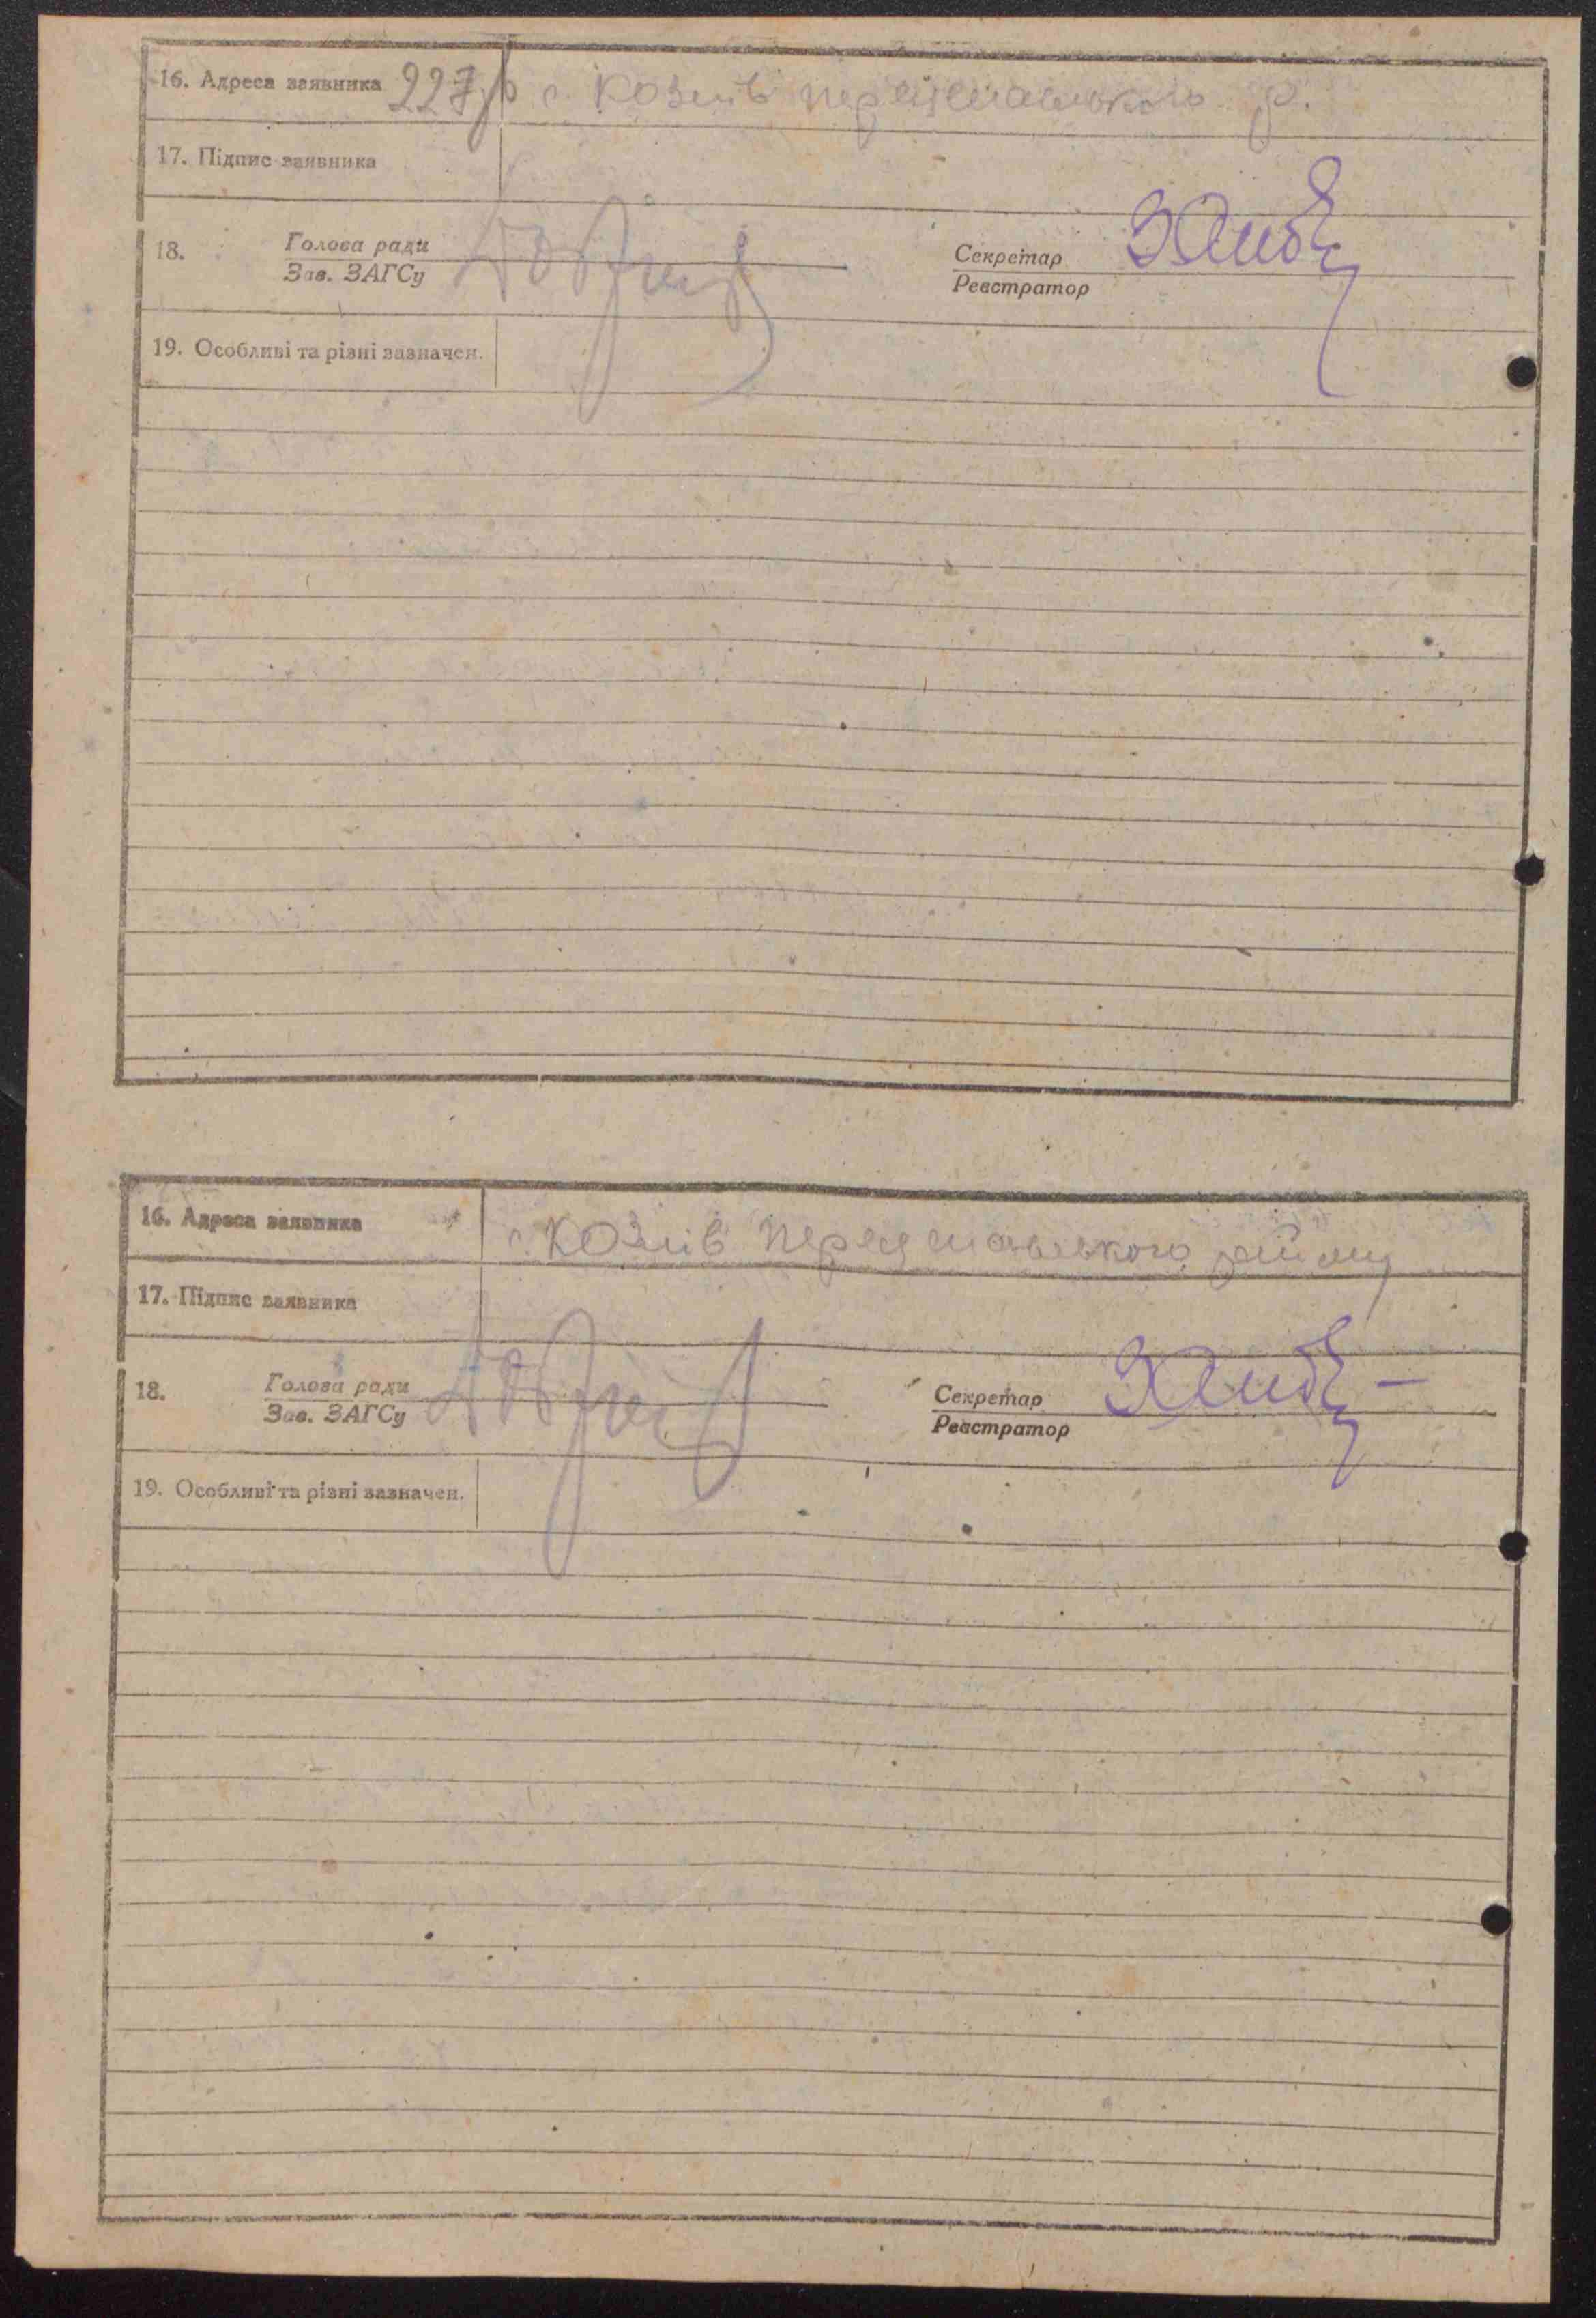 16. Адреса заявника 227зв с. Козлів переяславського р.
17. Підпис заявника
18. Голова ради Секретар
Зав. ЗАГСу Реєстратор
19. Особливі та різні зазначен.
16. Адреса заявника с. Козлів переяславського району
17. Підпис заявника
18. Голова ради Секретар
Зав. ЗАГСу Реєстратор
19. Особливі та різні зазначен.